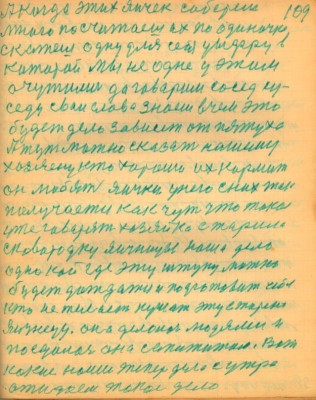 А когда этих яичек соберем 109
много посчитаем их по одиночку
скажем одну для себя увидеру в
которой мы не одне у этом
очутимся договорим сосед со-
седу свои слова знаем в чем это
будет дело зависет от пятуха
А тут можно сказать нашему
хозяену кто хорошо их кормит
он любят яички у него с них там
получается как чут что такое
уже говорят хозяйка старит
сковородку яичницы наше дело
одно кой где эту штуку можно
будет дождать и подготовит себя
кто не желает кушат эту старину
Яичницу. она делалась людями и
поедалась она с аппетитом. Вот
какие наши теперь дела с утра
ожидаем такое дело